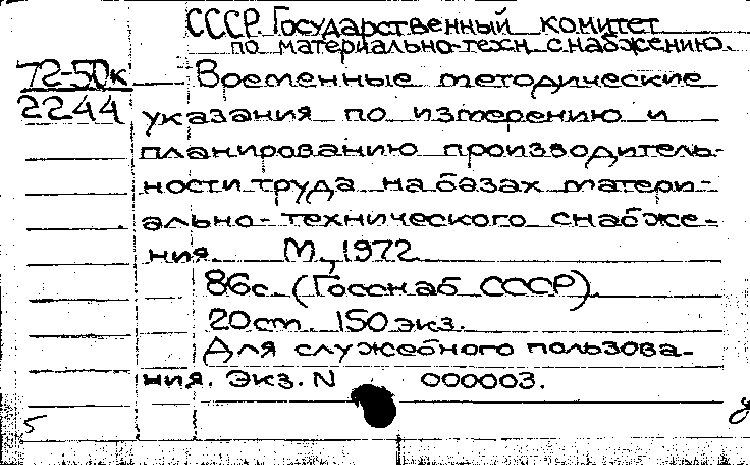 СССР. Государственный комитет
по материально-техн. снабжению.
72-50к
2244
Временные методические
указания по измерению и
планированию производитель-
ности труда на базах матери-
ально-технического снабже-
ния. М., 1972.
86с. (Госснаб СССР).
20см. 150экз.
Для служебного пользова-
ния. Экз. N 000003.
5